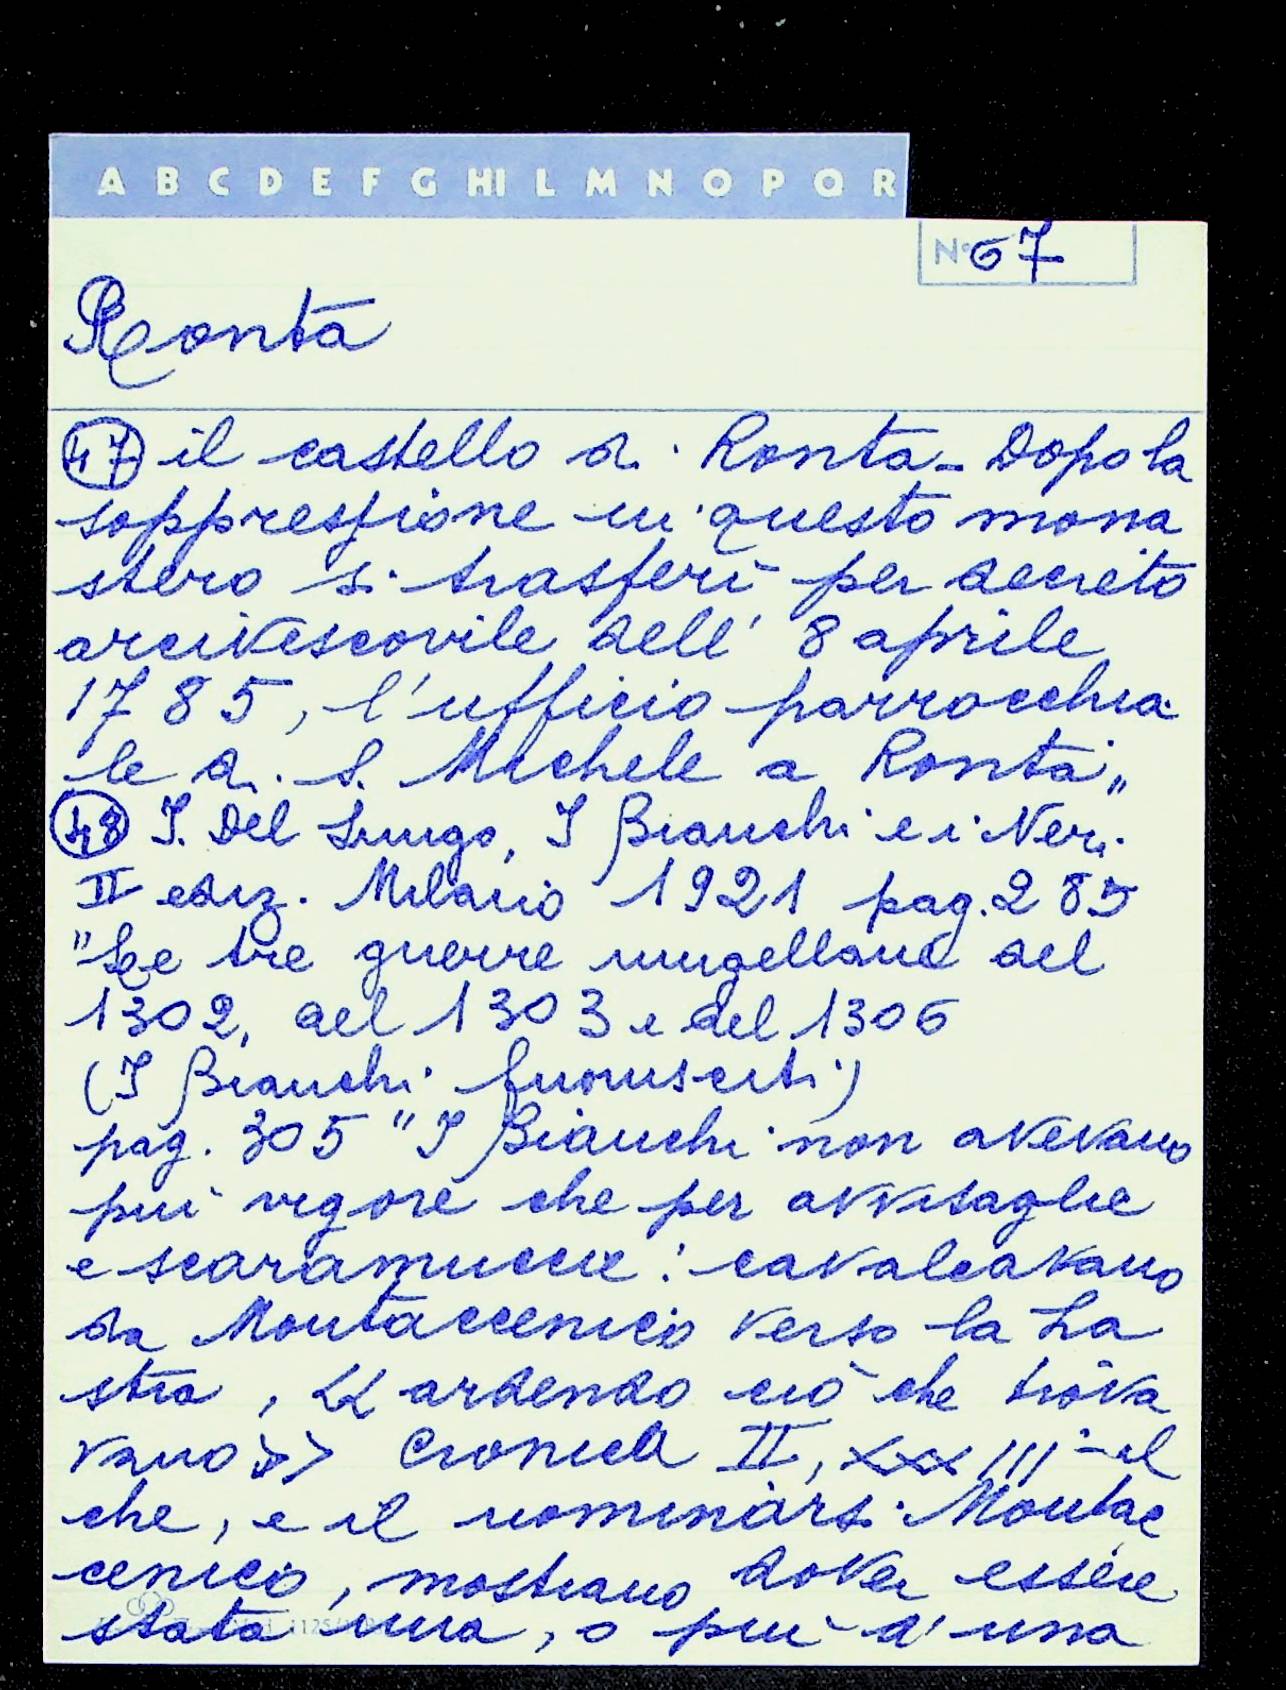 A B C D E F G HI L M N O P Q R
N° 67
Ronta
47 il castello di Ronta - Dopo la
soppressione in questo mona
stero si trasferì per decreto
arcivescovile dell' 8 aprile
1785, l'ufficio parrocchia
le di S. Michele a Ronta„
48 I. Del Lungo, I Bianchi e i Neri.
II ediz. Milano 1921 pag. 285
"Le tre guerre mugellane del
1302, del 1303 e del 1306
(I Bianchi fuorusciti)
pag. 305 "I Bianchi non avevano
più vigore che per avvisaglie
e scaramuccie: cavalcavano
da Montaccenico verso la La
stra, << ardendo ciò che trova
vano>> Cronica II, XXXIII - il
che, e il nominarsi Montac
cenico, mostrano dover essere
stata una, o più d'una